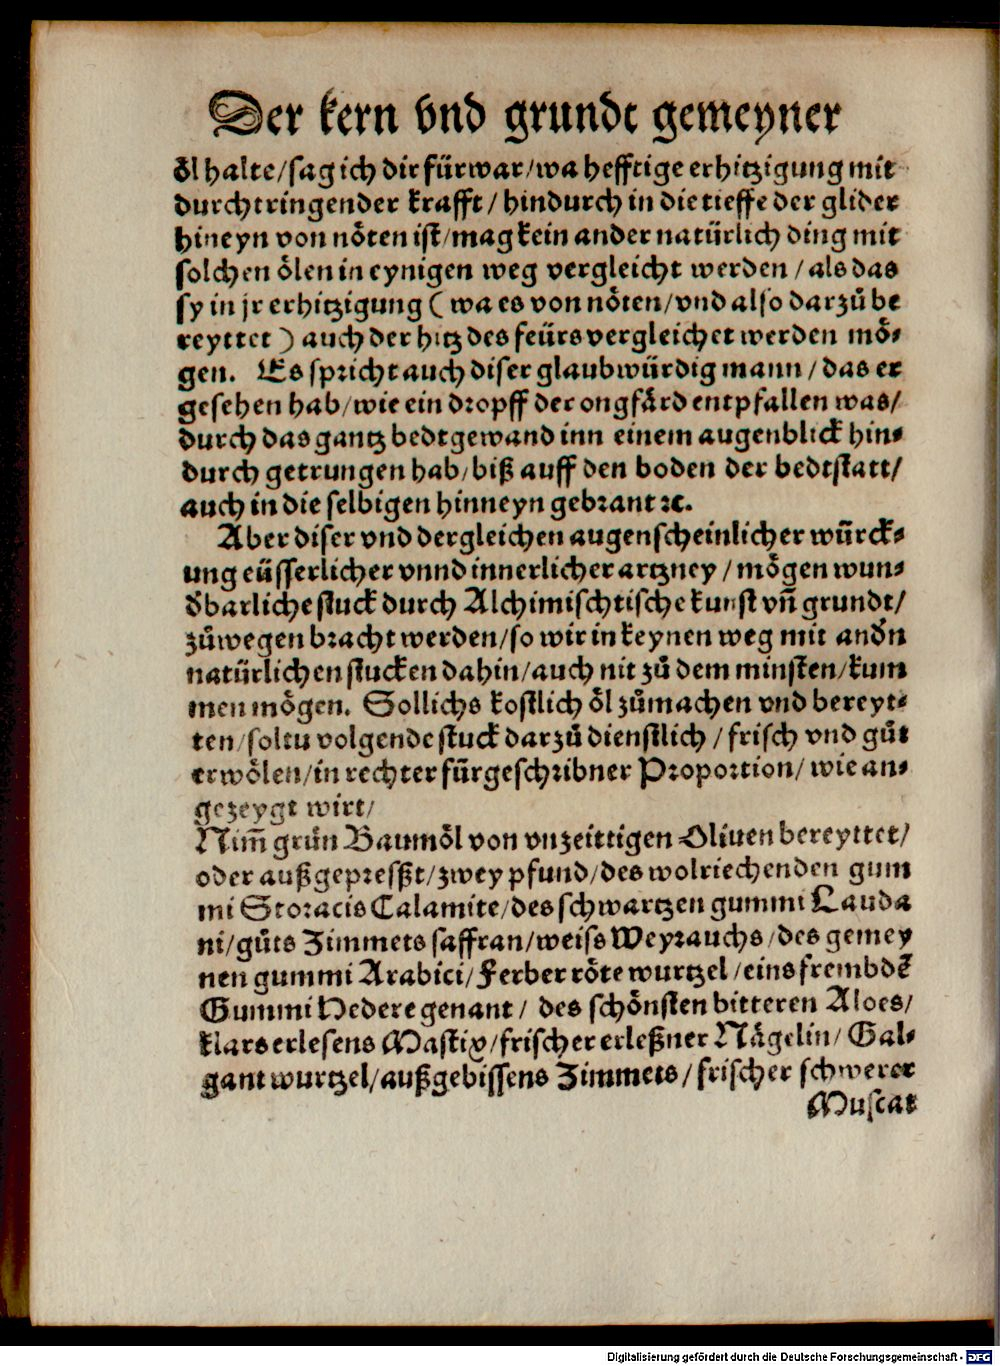 Der kern vnd grundt gemeyner
öl halte/sag ich dir fürwar/wa hefftige erhitzigung mit
durchtringender krafft/hindurch in die tieffe der glider
hineyn von nöten ist/mag kein ander natürlich ding mit
solchen ölen in eynigen weg vergleicht werden/als das
sy in jr erhitzigung (wa es von nöten/vnd also darzů be
reyttet) auch der hitz des feürs vergleichet werden mö⸗
gen. Es spricht auch diser glaubwürdig mann/das er
gesehen hab/wie ein dropff der ongfärd entpfallen was/
durch das gantz bedtgewand inn einem augenblick hin⸗
durch getrungen hab/biß auff den boden der bedtstatt/
auch in die selbigen hinneyn gebrant ꝛc.
Aber diser vnd dergleichen augenscheinlicher würck⸗
ung eüsserlicher vnnd innerlicher artzney/mögen wun⸗
d̄barliche stuck durch Alchimischtische kunst vn̄ grundt/
zůwegen bracht werden/so wir in keynen weg mit and̄n
natürlichen stucken dahin/auch nit zů dem minsten/kum
men mögen. Sollichs kostlich öl zůmachen vnd bereyt⸗
ten/soltu volgende stuck darzů dienstlich/frisch vnd gůt
erwölen/in rechter fürgeschribner Proportion/wie an⸗
gezeygt wirt/
Nim̄ grün Baumöl von vnzeittigen Oliuen bereyttet/
oder außgepreßt/zwey pfund/des wolriechenden gum
mi Storacis Calamite/des schwartzen gummi Lauda
ni/gůts Zimmets saffran/weiss Weyrauchs/des gemey
nen gummi Arabici/Ferber röte wurtzel/eins frembdē
Gummi Hedere genant/ des schönsten bitteren Aloes/
klars erlesens Mastix/frischer erleßner Nägelin/Gal⸗
gant wurtzel/außgebissens Zimmets/frischer schwerer
Muscat
Digitalisierung gefördert durch die Deutsche Forschungsgemeinschaft - DFG